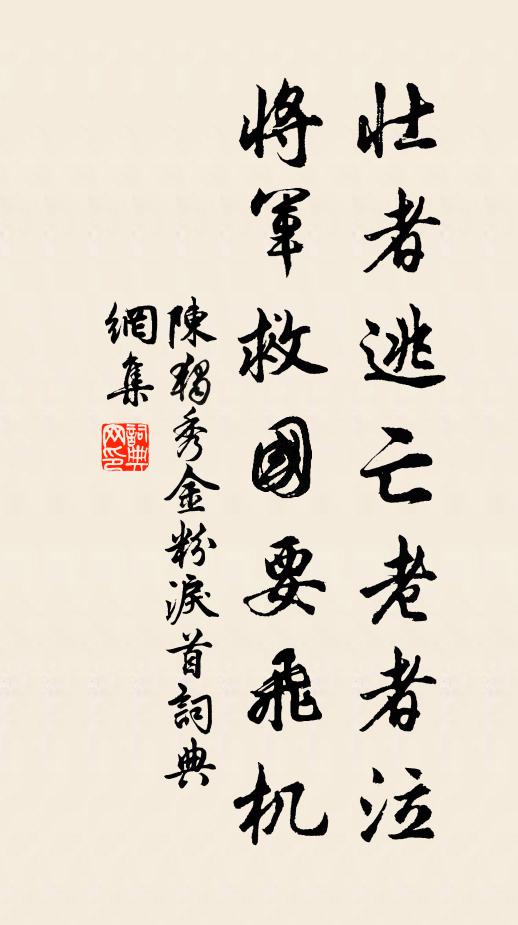 壮者逃亡老者泣
將軍救國要飛机
陳獨秀金粉淚首詞典
網集
詞典
网印